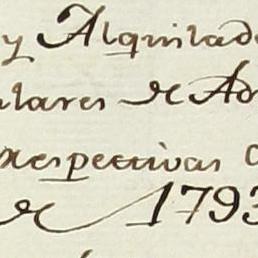 y Alquilad
ulares de Ad
respectivas
de 1793